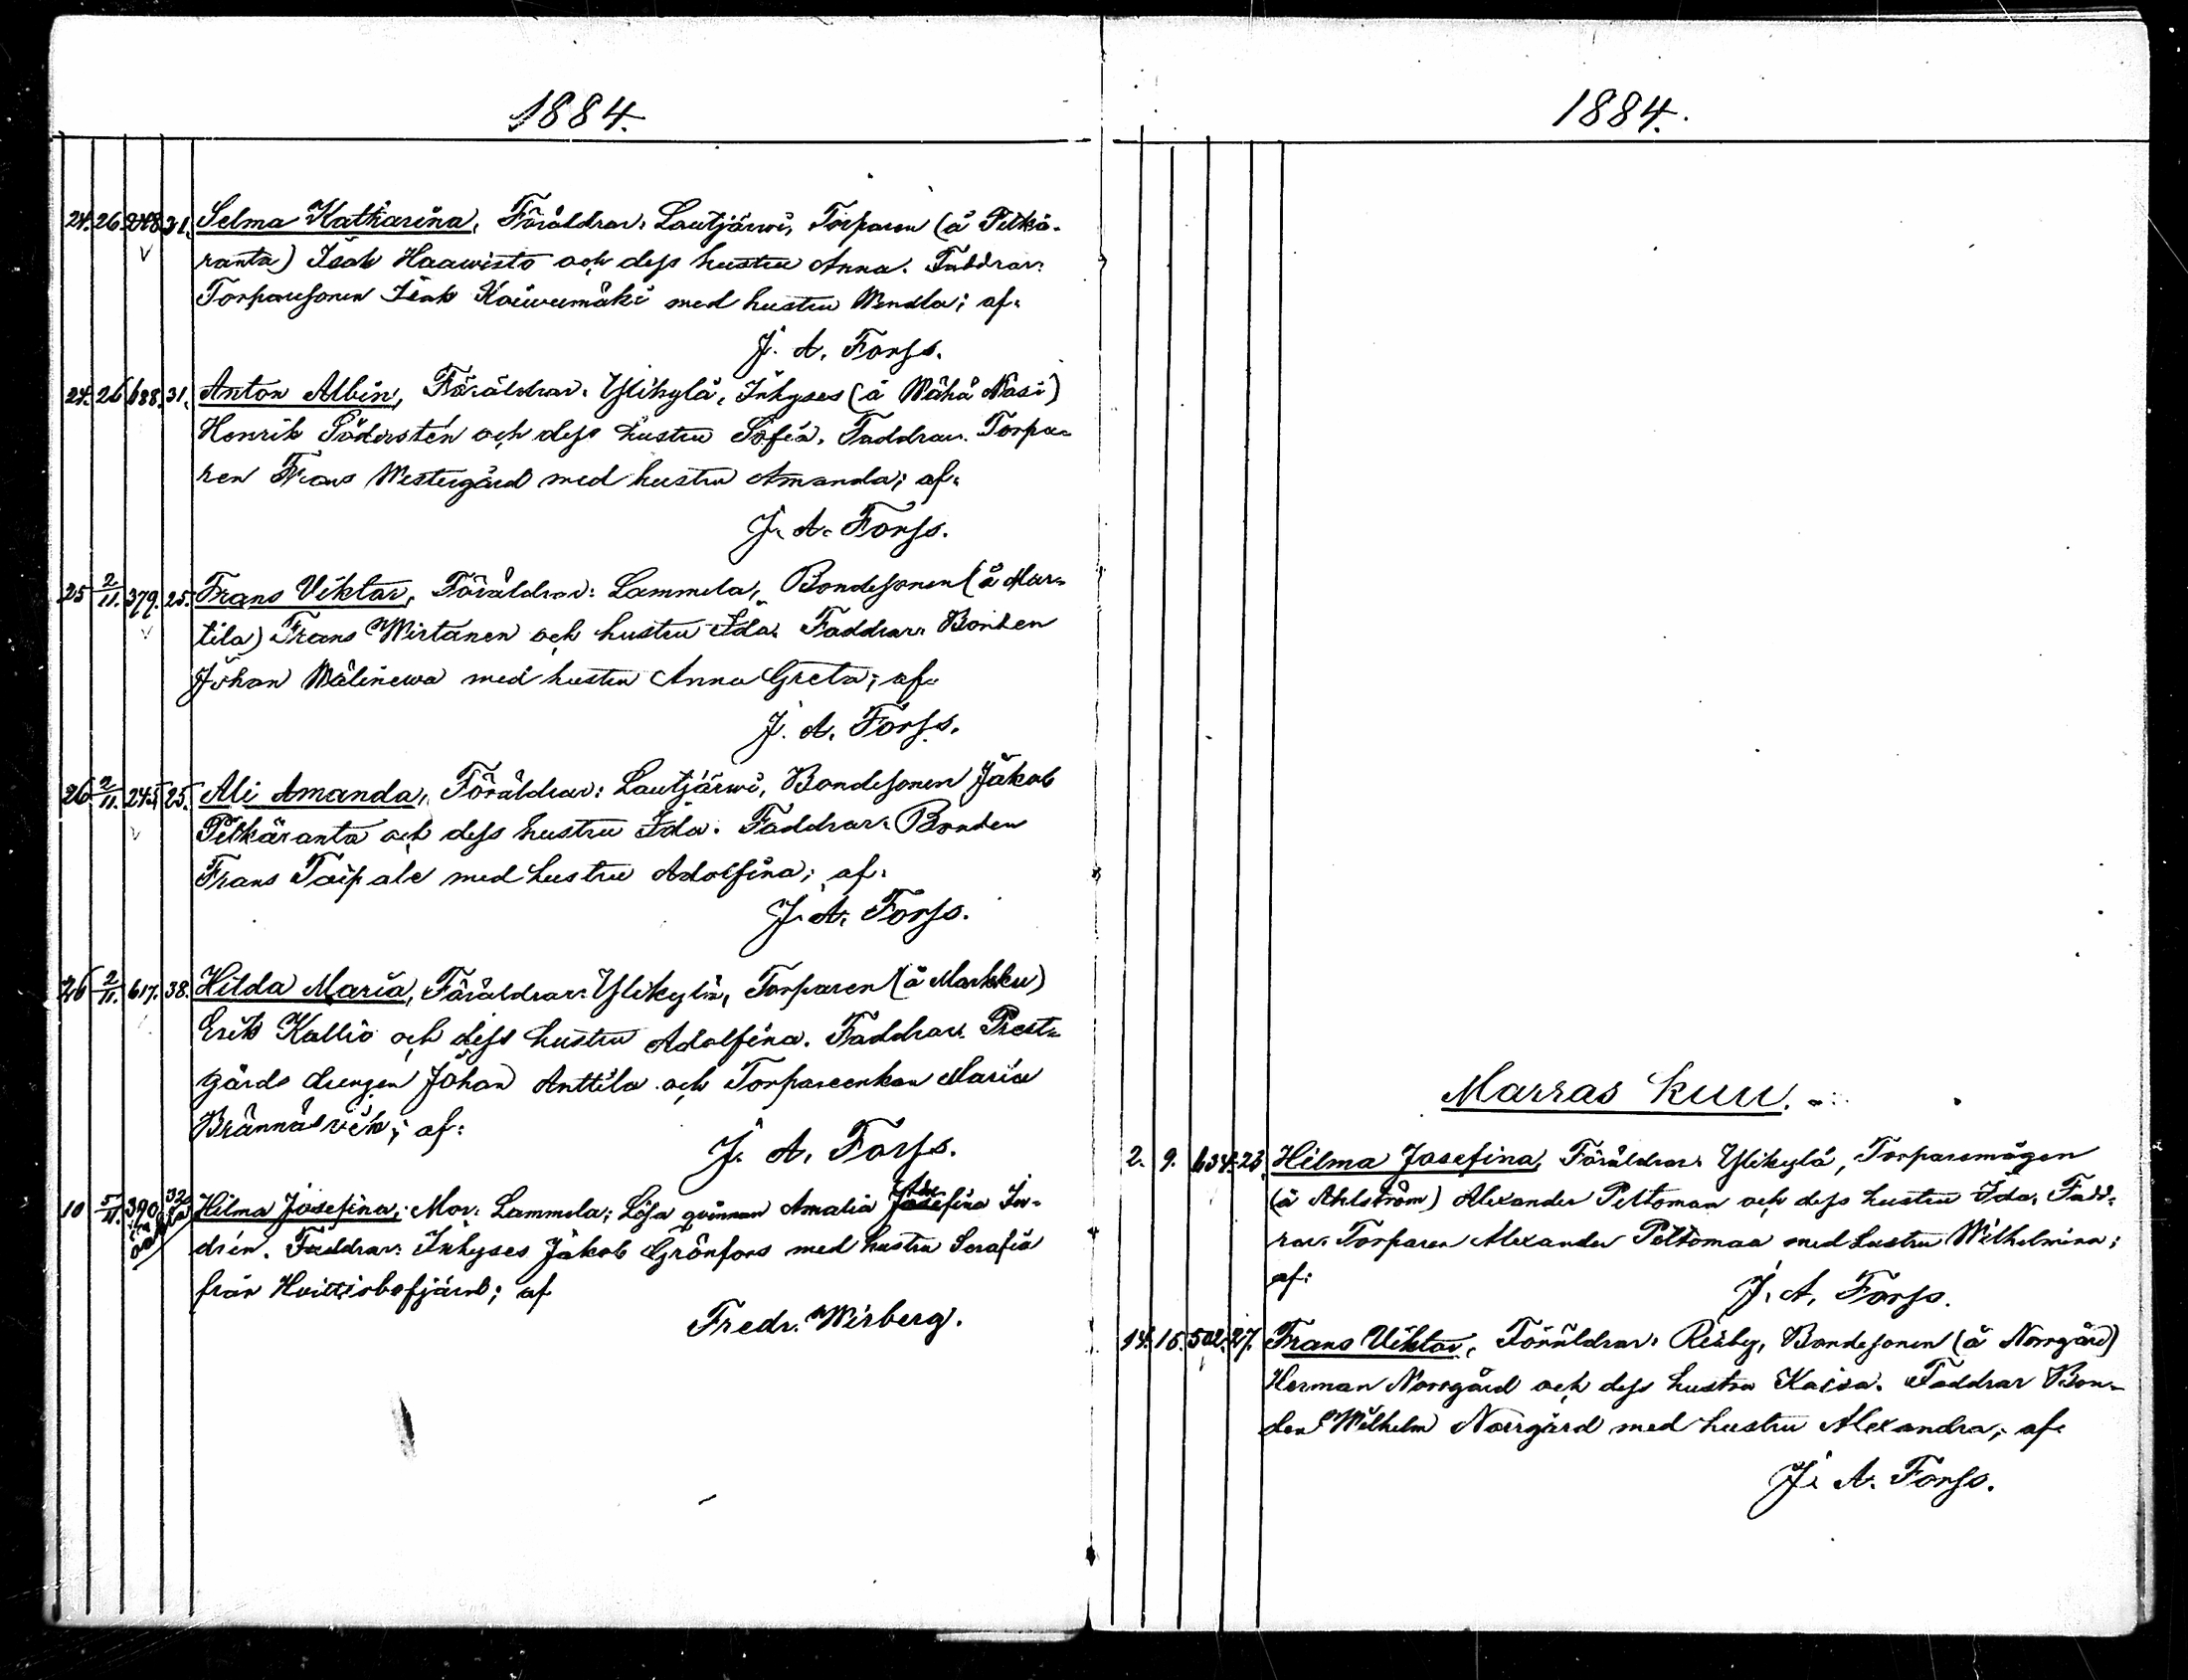 1884.
24. 26. 248. 31. Selma Katharina, Föräldrar: Lautjärwi, Torparen (å Pitkä-
ranta) Isak Haawisto och dess hustru Anna. Faddrar:
Torparesonen Isak Koiwumäki med hustru Wendla; af:
J. A. Forss.
24. 26 688. 31. Anton Albin, Föräldrar: Ylikylä, Inhyses (å Wähä Nasi)
Henrik Södersten och dess hustru Sofia. Faddrar: Torpa-
ren Frans Westergård med hustru Amanda; af:
J. A. Forss.
25 2/11. 379. 25. Frans Viktor, Föräldrar: Lammela, Bondesonen (å Mar-
tila) Frans Wirtanen och hustru Ida. Faddrar: Bonden
Johan Wälinewa med hustru Anna Greta; af:
J. A. Forss.
26 2/11. 245. 25. Ali Amanda, Föräldrar: Lautjärwi, Bondesonen Jakob
Pitkäranta och dess hustru Ida. Faddrar: Bonden
Frans Taipale med hustru Adolfina; af:
J. A. Forss.
26 2/11. 617. 38. Hilda Maria, Föräldrar: Ylikylä, Torparen (å Markku)
Erik Kallio och dess hustru Adolfina. Faddrar: Prest-
gårds drengen Johan Anttila och Torpareenkan Maria
Brännäsvik; af:
J. A. Forss.
10 5/11. 390 32 Hilma Josefina; Mor: Lammela; Lösa qvinnan Amalia Josefina In-
drén. Faddrar: Inhyses Jakob Grönfors med hustru Serafia
från Hvittisbofjärd; af
Fredr. Wirberg.
1884.
Marras kuu.
2. 9. 634. 23. Hilma Josefina, Föräldrar: Ylikylä, Torparemågen
(å Ahlström) Alexander Peltoman och dess hustru Ida. Fadd-
rar: Torparen Alexander Peltomaa med hustru Wilhelmina;
af:
J. A. Forss.
14. 16. 502. 27. Frans Viktor, Föräldrar: Risby, Bondesonen (å Norrgård)
Herman Norrgård och dess hustru Kaisa. Faddrar Bon-
den Wilhelm Norrgård med hustru Alexandra; af:
J. A. Forss.